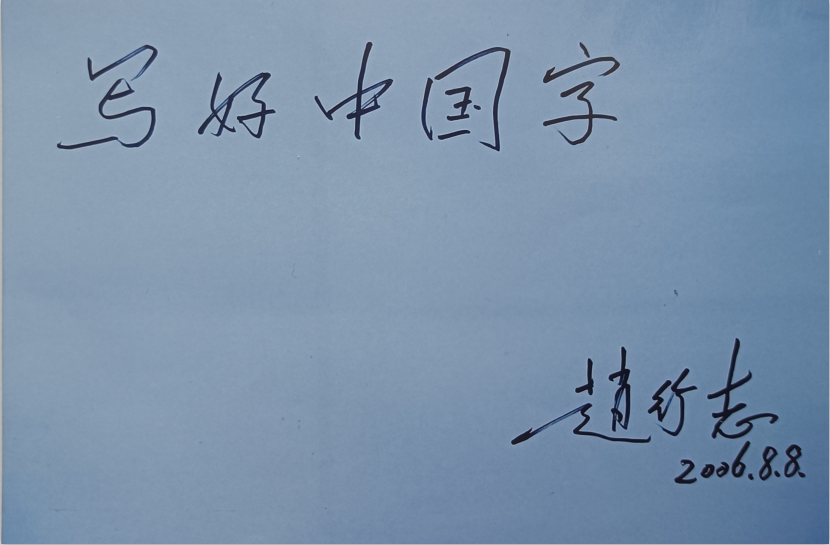 写好中国字
趙行志
2006.8.8.